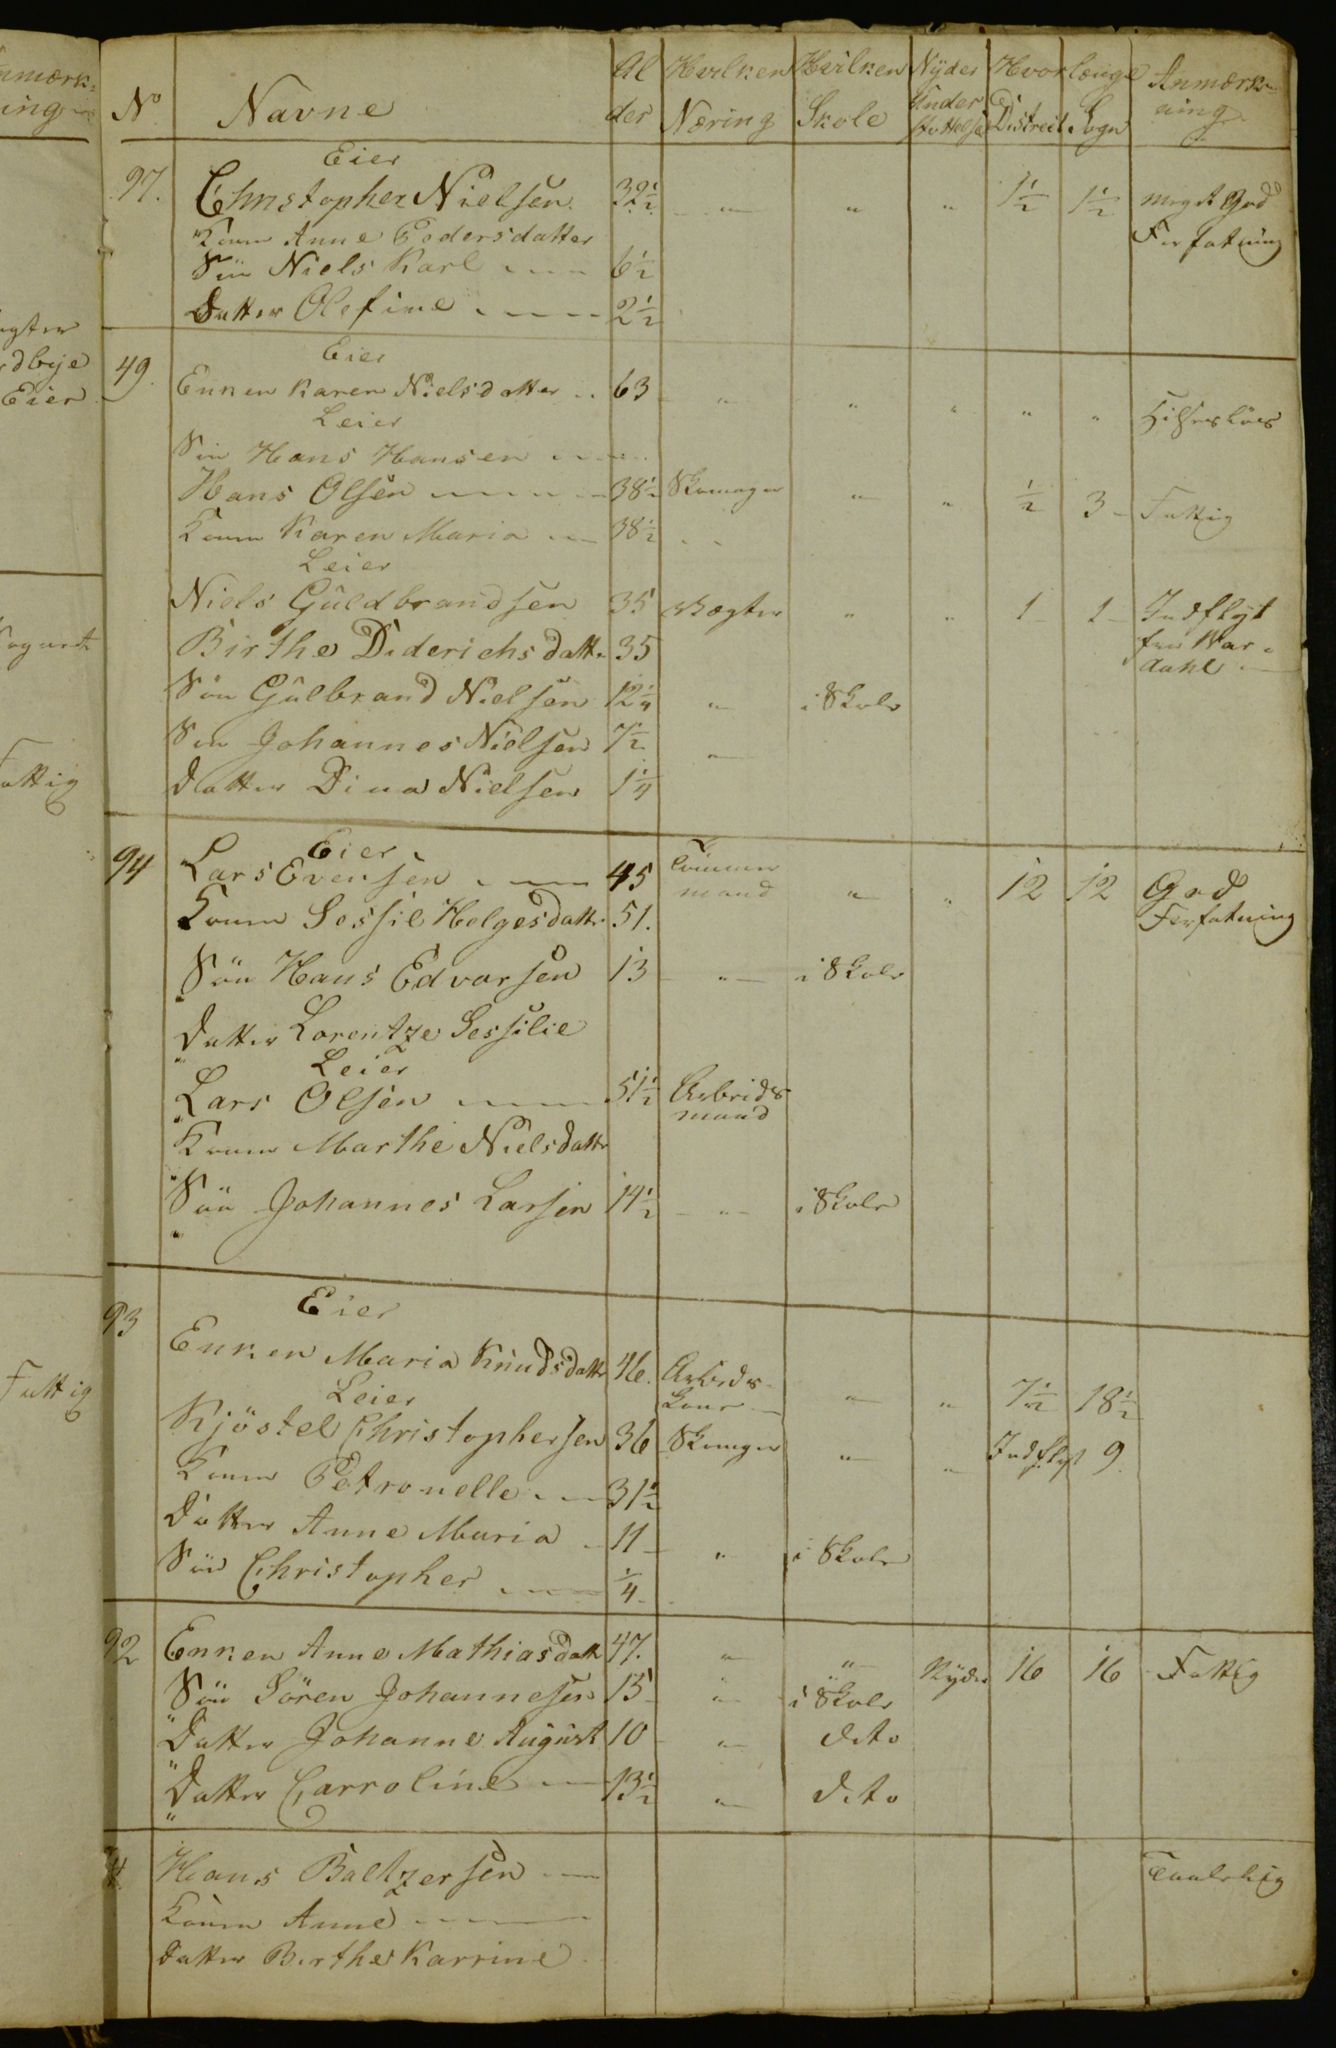 nmærk-
ing
N° Navne Al der Hvilken Næring Hvilken Skole Nyder Under støttelse Hvorlænge Distrect Sogn Anmærkning
Eier
97. Christopher Nielsen 32½ " " " 1½ 1½ meget God
Kone Anne Pedersdatter Forfatning
Søn Niels Karl 6½
Datter Olefine 2½
Eier
49. Enken Karen Nielsdatter 63 " " " " "
Leier
Søn Hans Hansen
Hans Olsen 38½ Skomager " " ½ 3 Fattig
Kone Karen Maria 38½
Leier
Niels Guldbrandsen 35 Vægter " " 1 1 Indflyt
Birthe Diderichsdatt. 35 fra War-
dahl
Søn Gulbrand Nielsen 12¼ " i Skole
Søn Johannes Nielsen 7½ "
Datter Dina Nielsen 1¼
Eier
94 Lars Evensen 45 Tømmer mand " " 12 12 God
Kone Sessil Helgesdattr. 51. Forfatning
Søn Hans Edvarsen 13 " i Skole
Datter Lorentze Sessilie
Leier
Lars Olsen 51½ Arbeids mand
Kone Marthe Nielsdattr
Søn Johannes Larsen 14½ " i Skole
Eier
93
Enken Maria Knudsdattr 46. Arbeids- " " 7½ 18½
Leier
Kjöstel Christophersen 36 Skomger " " Indflyt 9
Kone Petronelle 31½
Datter Anne Maria 11 " i Skole
Søn Christopher ¼
92 Enken Anne Mathiasdatt 47. " " Nyder 16 16 Fattig
Søn Sören Johannesen 15 " i Skole
Datter Johanne August 10 " dito
Datter Carroline 13½ " dito
Hans Baltzersen Taalelig
Kone Anne
Datter Berthe Karrine
dbye
Eier
Fattig
Fattig